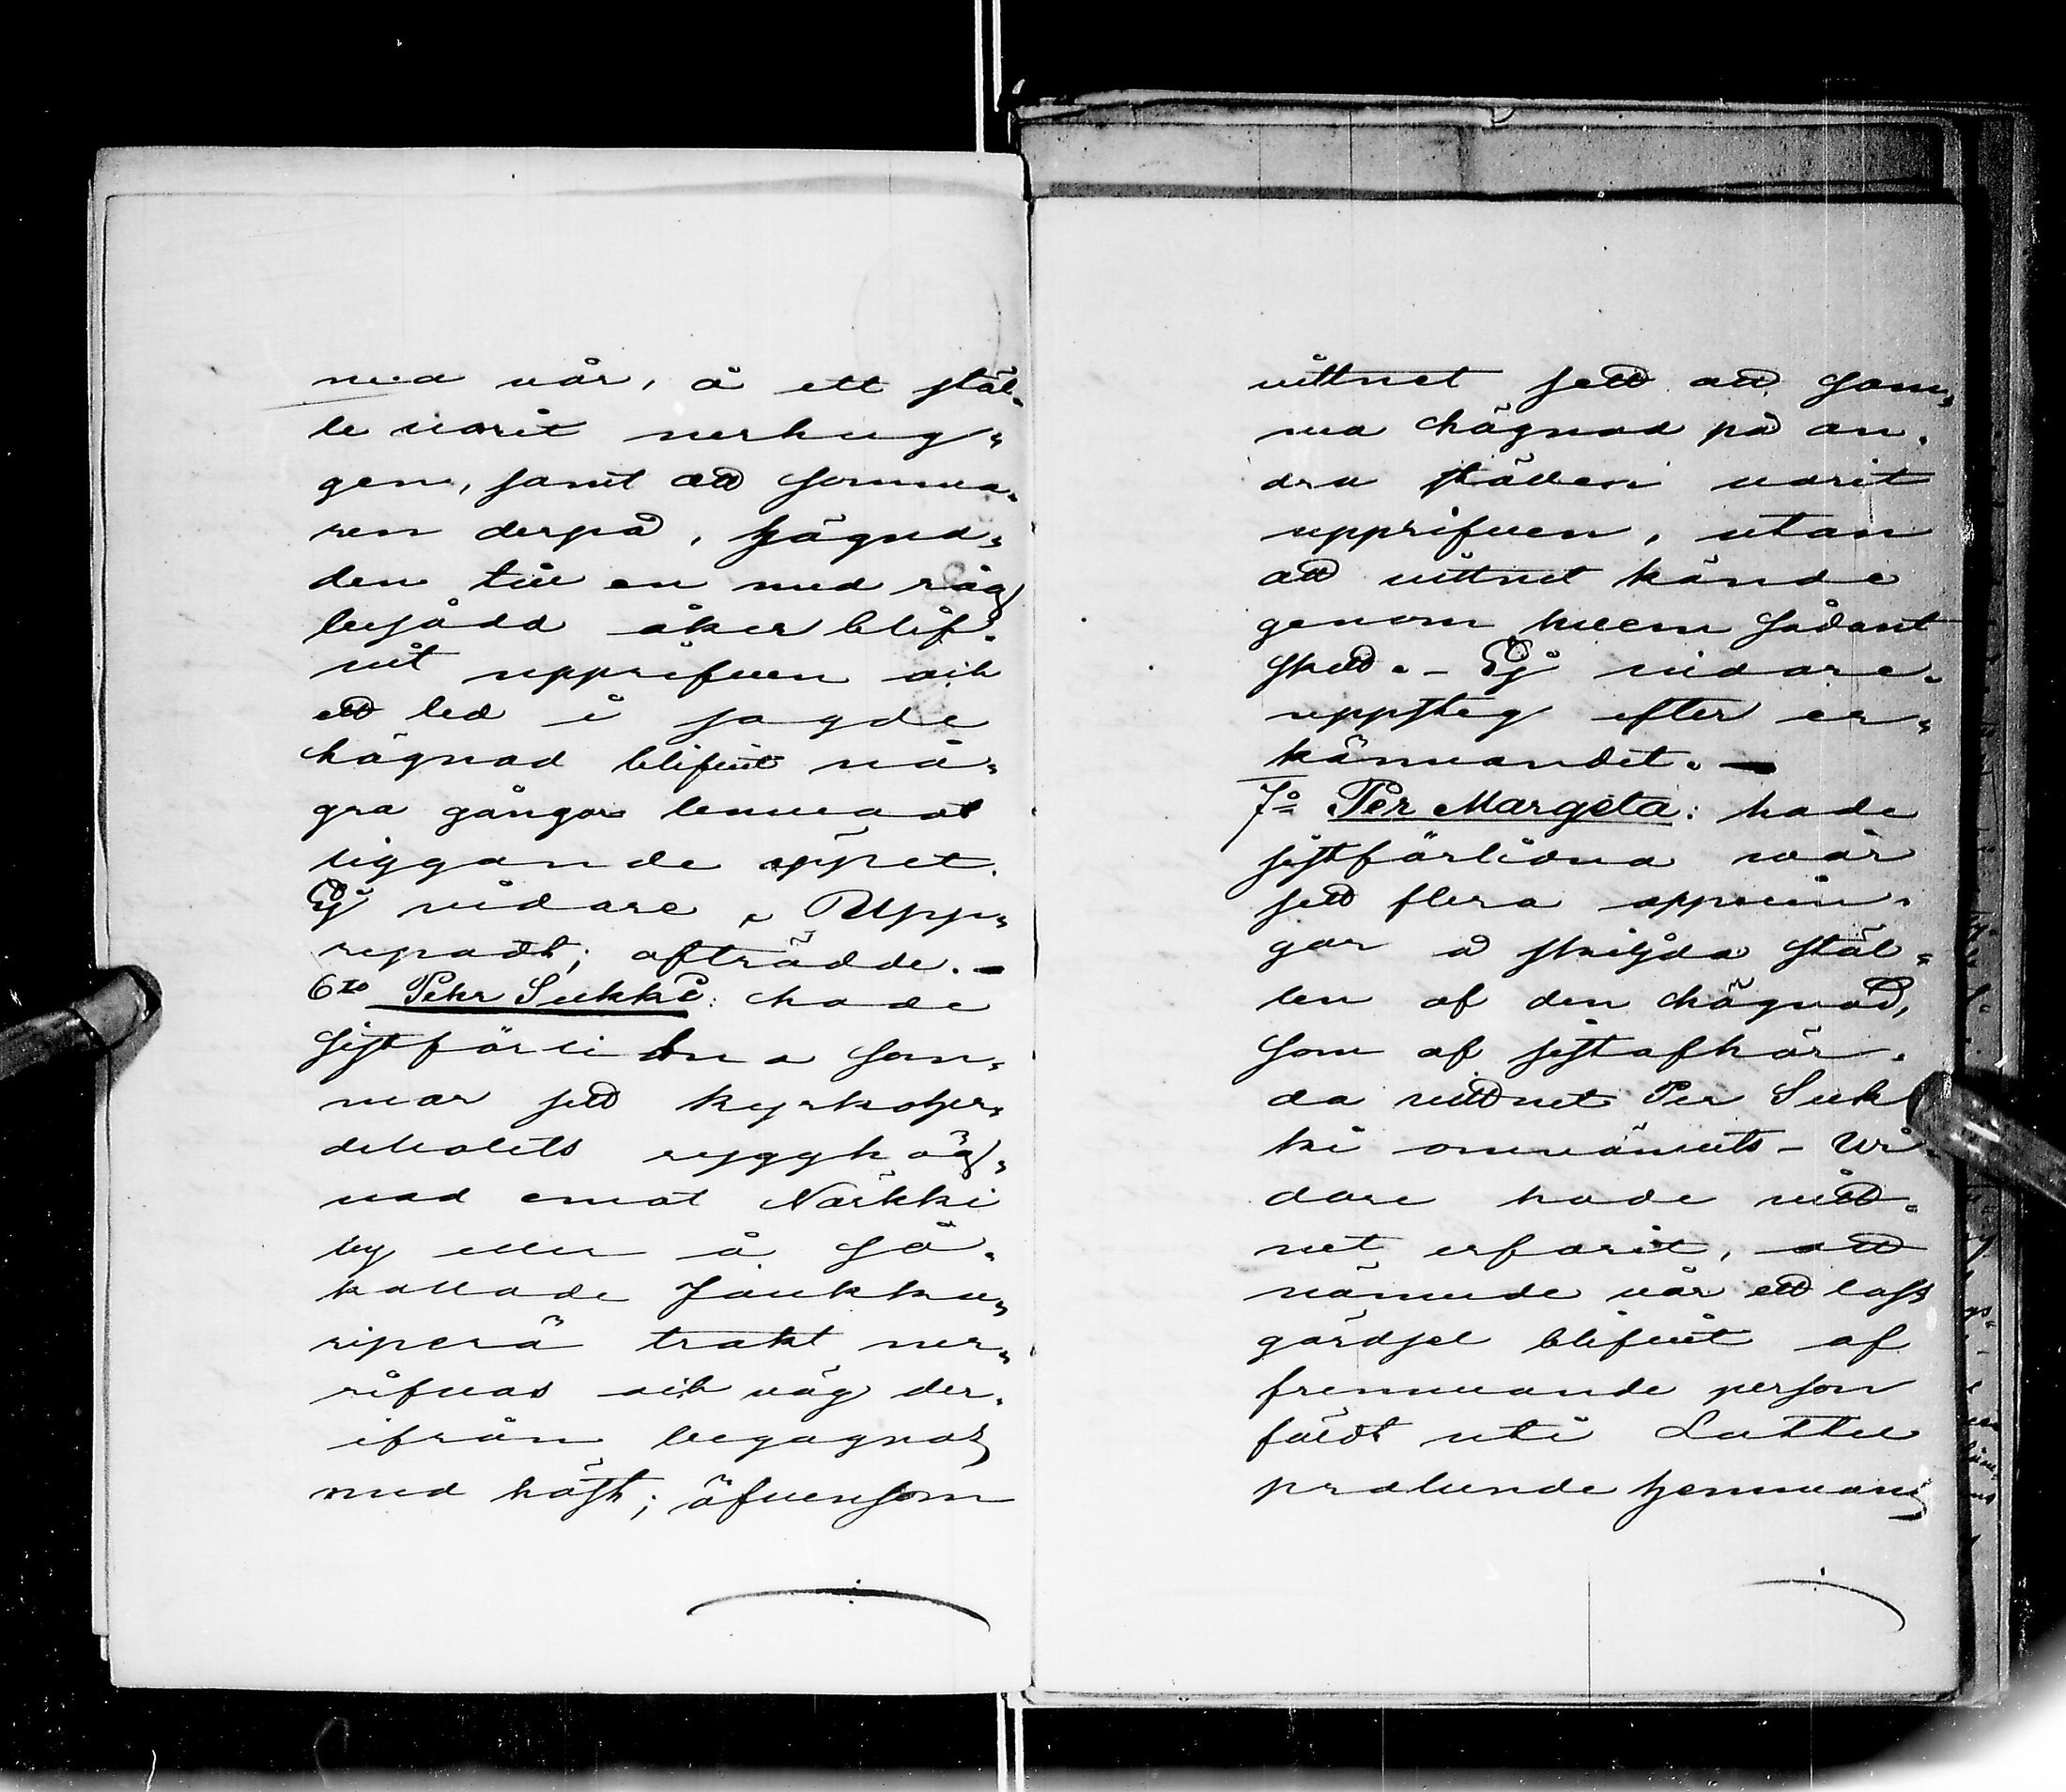 ma vår, å ett stäl-
le varit nerhug-
gen, samt att somma-
ren derpå, hägna-
den till en med råg
besådd åker blif-
vit upprifven och
ett led i sagde
hägnad blifvit nå-
gra gångor lemnat
liggande öppet.
Ej vidare. Upp-
repadt; afträdde. —
6to Pehr Sukki: hade
sistförlidna som-
mar sett kyrkoher-
debolets rygghäg-
nad emot Närkki
by eller å så-
kallade Jaukku-
riperä trakt ner-
rifvas och väg der-
ifrån begagnas
med häst; äfvensom
vittnet sett att sam-
ma hägnad på an-
dra ställen varit
upprifven, utan
att vittnet kände
genom hvem sådant
skett. — Ej vidare
uppsteg efter er-
kännandet. —
7o Per Margeta: hade
sistförlidna vår
sett flera öppnin-
gar å skiljda stäl-
len af den hägnad,
som af sistafhör-
da vittnet Per Suk-
ki omnämnts – Vi-
dare hade vitt-
net erfarit, att
nämnde vår ett lass
gärdsel blifvit af
fremmande person
fördt uti Lattu
prælunde hemmans